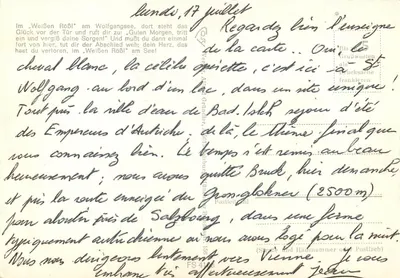 lundi 17 juillet
Im „Weißen Rößl" am Wolfgangsee, dort steht das
Glück vor der Tür und ruft dir zu: „Guten Morgen, tritt
ein und vergiß deine Sorgen!" Und mußt du dann einmal
fort von hier, tut dir der Abschied weh; dein Herz, das
hast du verloren, im „Weißen Rößl" am See!
Regardez bien l'enseigne
de la carte.. Oui, le
cheval blanc, la célèbre opérette, c'est ici à St
Wolfgang au bord d'un lac, dans un site unique!
Tout près la ville d'eau de Bad. Ischl séjour d'été
des Empereurs d'Autriche. de là, le thème final que
vous connaissez bien. Le temps s'est remis au beau
heureusement; nous avons quitté Bruck, hier dimanche
et pris la route enneigée du Grossglokner (2500m)
pour aboutir près de Salzbourg, dans une ferme
typiquement autrichienne où nous avons logé pour la nuit.
Nous nous dirigeons lentement vers Vienne. Je vous
embrasse très affectueusement